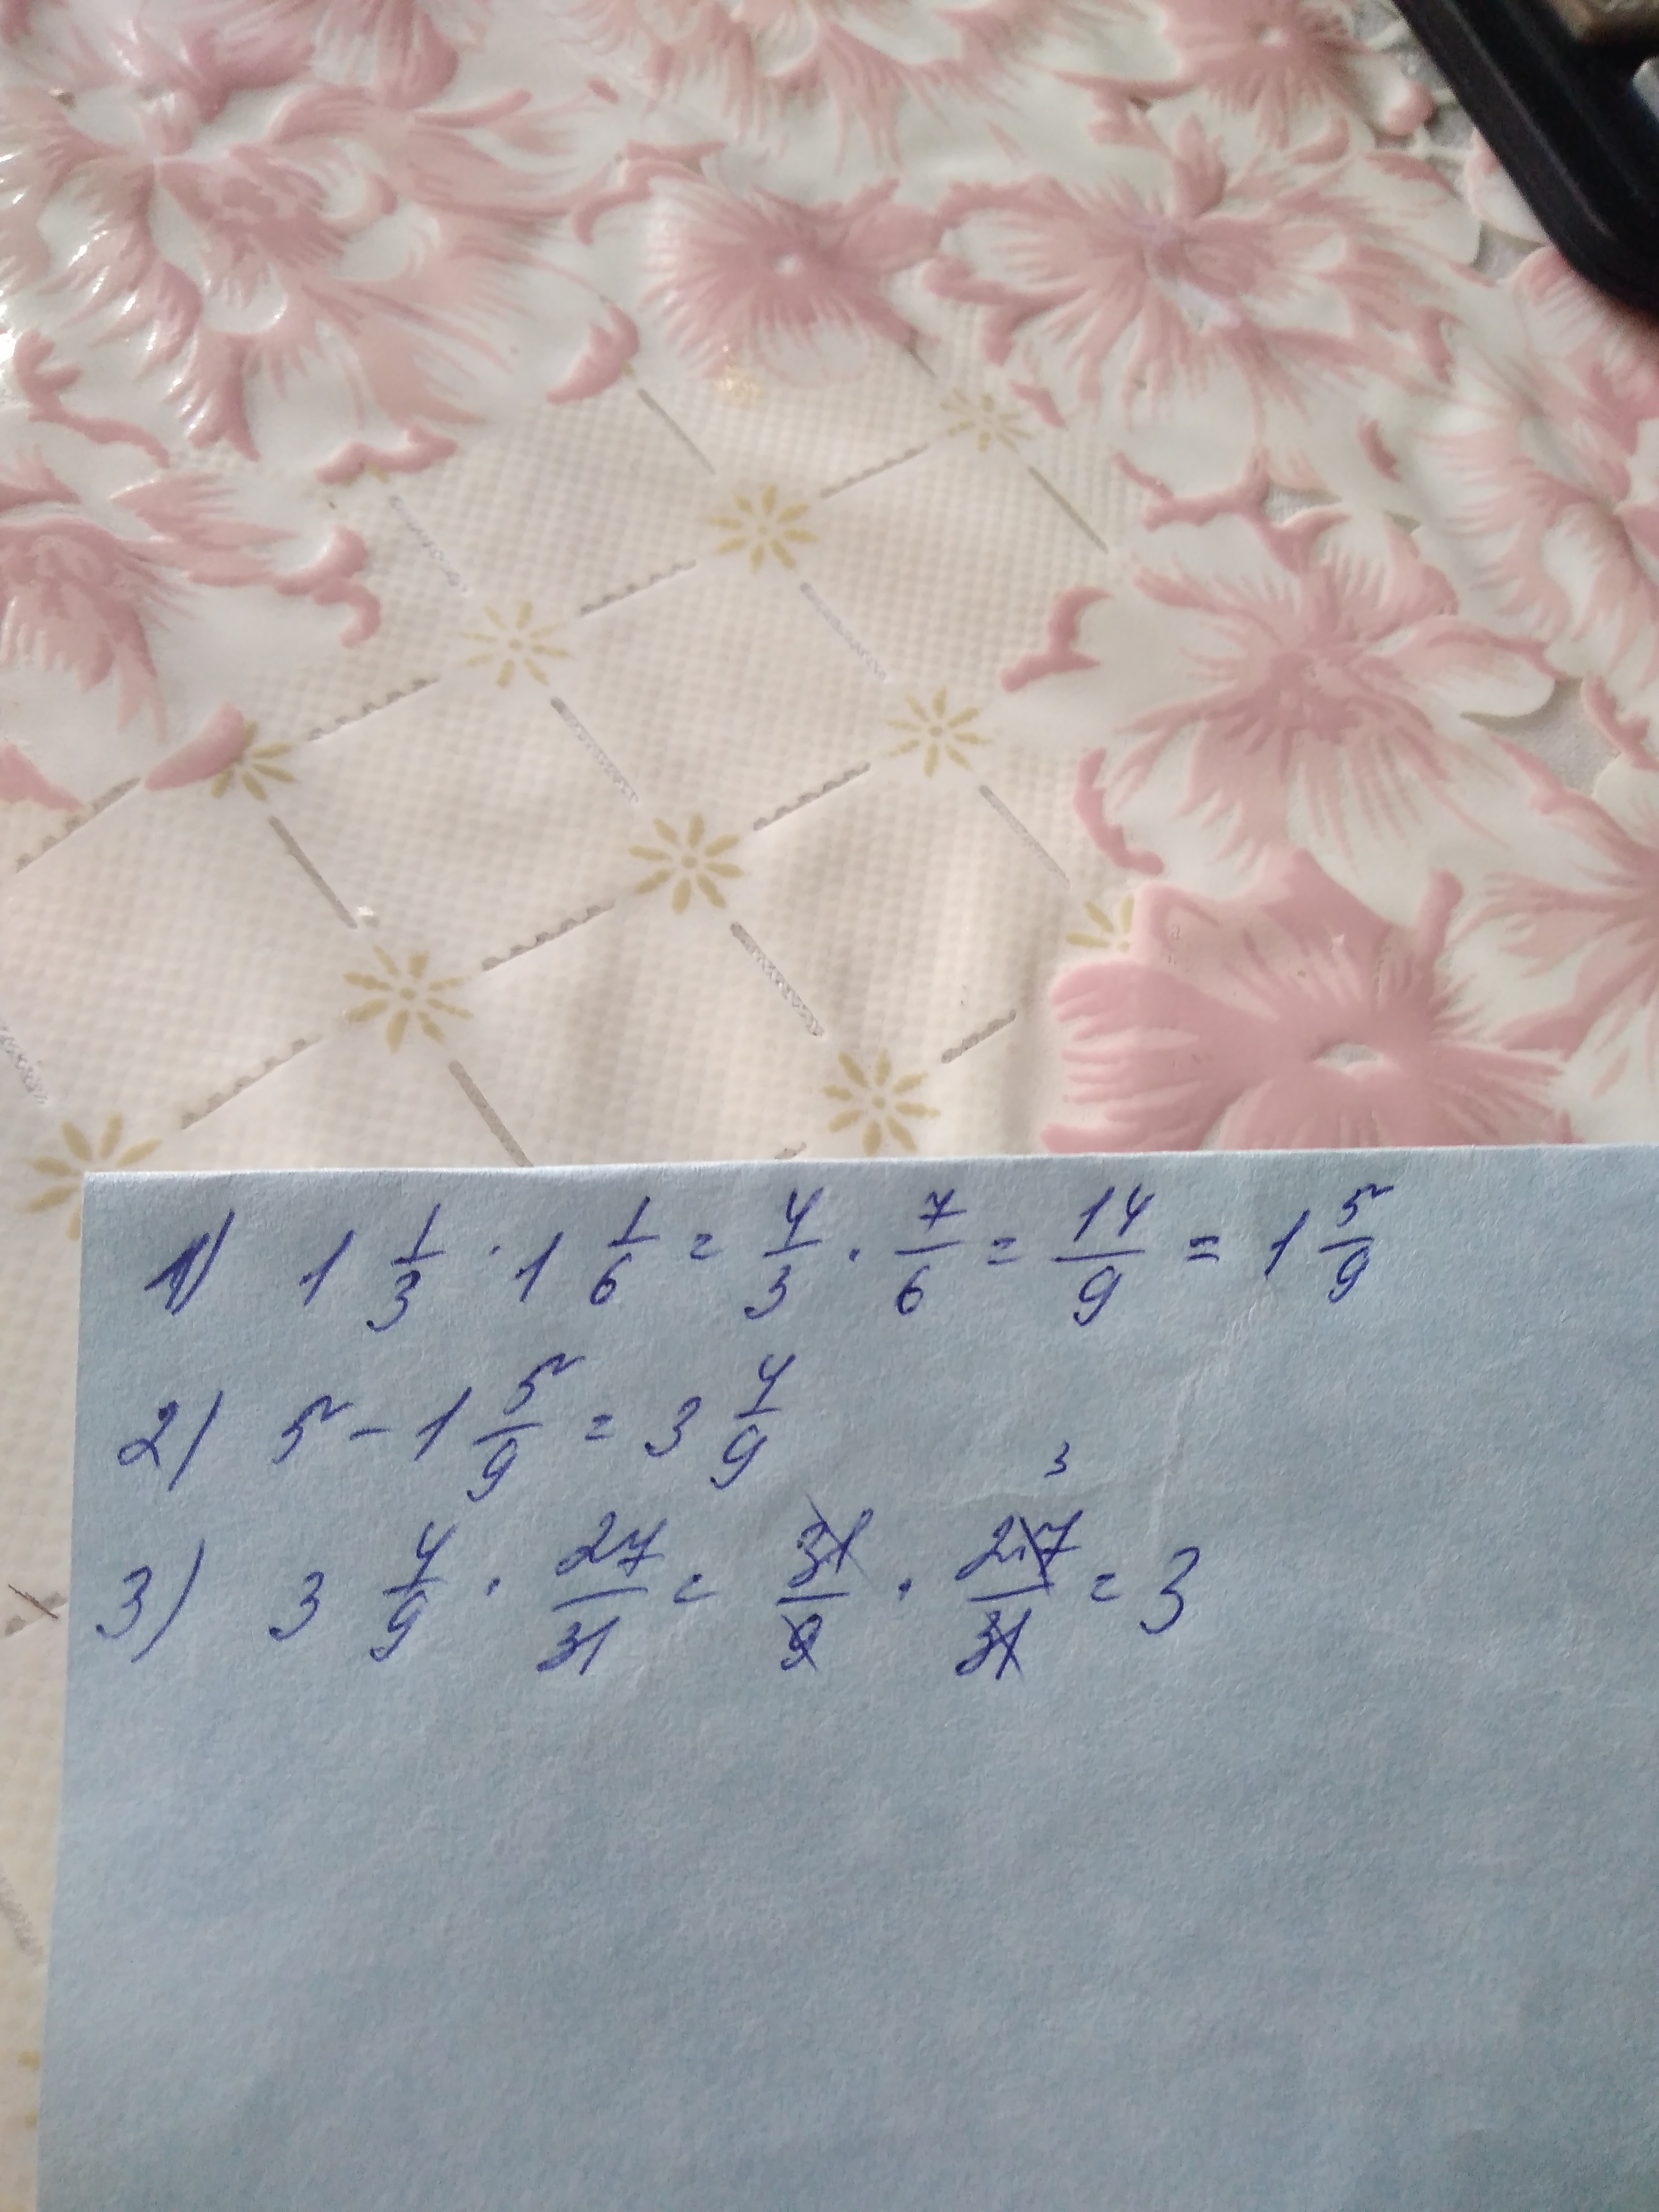 1) 1 1/3 · 1 1/6 = 4/3 · 7/6 = 14/9 = 1 5/9
2) 5 - 1 5/9 = 3 4/9
3) 3 4/9 · 27/31 = 31/9 · 27/31 = 3
3